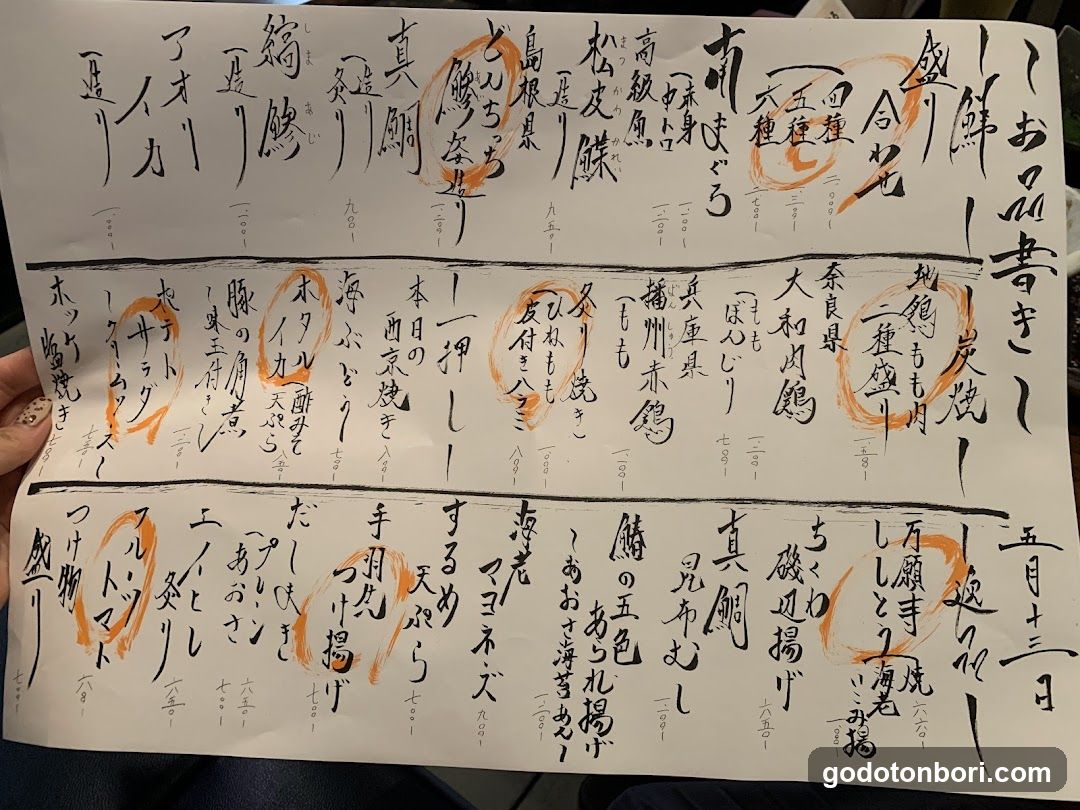 〜お品書き〜
五月十三日
〜鮮〜
盛り合わせ
四種
二、〇〇〇〜
五種
二、三〇〇〜
六種
二、七〇〇〜
本まぐろ
赤身
一、二〇〇〜
中トロ
一、三〇〇〜
高級魚
松皮鰈
まつかわかれい
造り
九五〇〜
島根県
どんちっち
鰺姿造り
あじ
一、二〇〇〜
真鯛
造り
炙り
九〇〇〜
縞鰺
しまあじ
造り
一、一〇〇〜
アオリイカ
造り
一、〇〇〇〜
〜炭焼〜
地鶏もも肉
二種盛り
一、五八〇〜
奈良県
大和肉鶏
もも
一、二〇〇〜
ぼんじり
七〇〇〜
兵庫県
播州赤鶏
ばんしゅう
もも
一、一〇〇〜
炙り焼き
ひねもも
一、〇〇〇〜
皮付きハラミ
八〇〇〜
〜一押し〜
本日の
西京焼き
八〇〇〜
海ぶどう
七〇〇〜
ホタルイカ
酢みそ
天ぷら
八五〇〜
豚の角煮
〜味玉付き〜
一、一〇〇〜
ポテトサラダ
〜クリームチーズ〜
七三〇〜
ホッケ塩焼き
七八〇〜
〜逸品〜
万願寺
ししとう
焼
六六〇〜
海老
いこみ揚
一、〇〇〇〜
ちくわ
磯辺揚げ
六五〇〜
真鯛
昆布むし
一、一〇〇〜
鰆の五色
あられ揚げ
〜あおさ海苔あん〜
一、二〇〇〜
海老
マヨネーズ
九〇〇〜
するめ
天ぷら
七〇〇〜
手羽先
つけ揚げ
七〇〇〜
だしまき
プレーン
六五〇〜
あおさ
七〇〇〜
エイヒレ
炙り
六五〇〜
フルーツ
トマト
六八〇〜
つけ物
盛り
七〇〇〜
godotonbori.com